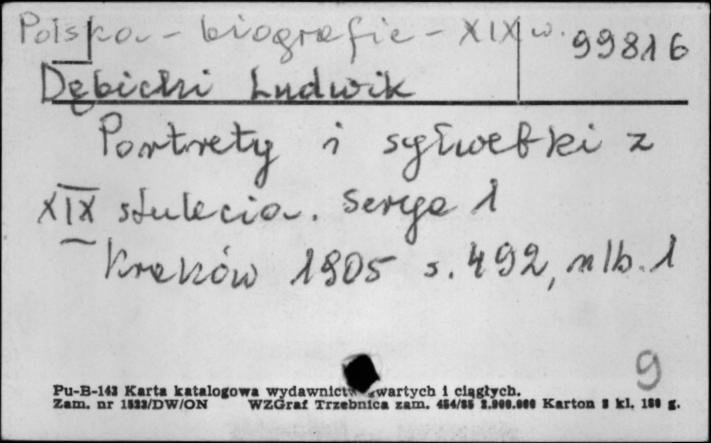 Polska - biografie - XIX w. 99816
Dębicki Ludwik
Portrety i sylwetki z
XIX stulecia. Serya 1
Kraków 1905 s. 492, nlb. 1
9
Pu-B-143 Karta katalogowa wydawnictw zwartych i ciągłych.
Zam. nr 1523/DW/ON WZGraf Trzebnica zam. 454/85 2.000.000 Karton 3 kl. 180 g.